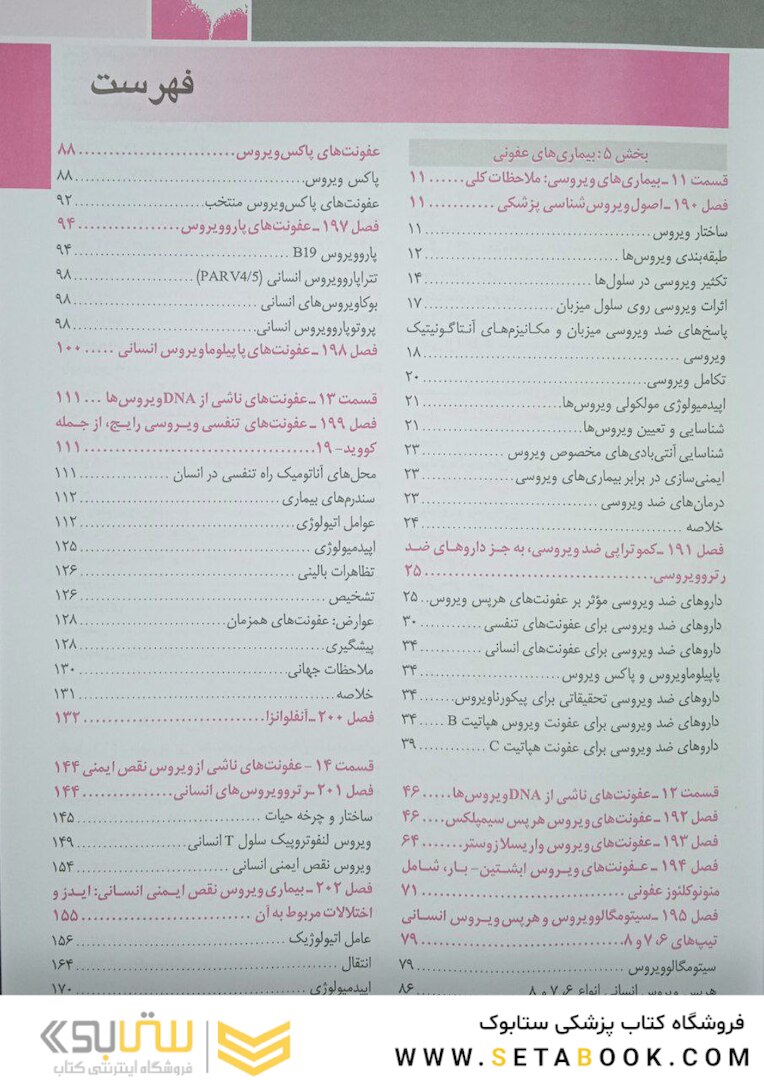 فهرست
بخش ۵: بیماری‌های عفونی
قسمت ۱۱ ـ بیماری‌های ویروسی: ملاحظات کلی ...... ۱۱
فصل ۱۹۰ ـ اصول ویروس‌شناسی پزشکی ........... ۱۱
ساختار ویروس ........................ ۱۱
طبقه‌بندی ویروس‌ها ........................ ۱۲
تکثیر ویروسی در سلول‌ها ........................ ۱۴
اثرات ویروسی روی سلول میزبان ........................ ۱۷
پاسخ‌های ضد ویروسی میزبان و مکانیزم‌های آنتاگونیتیک
ویروسی ........................ ۱۸
تکامل ویروسی ........................ ۲۰
اپیدمیولوژی مولکولی ویروس‌ها ........................ ۲۱
شناسایی و تعیین ویروس‌ها ........................ ۲۱
شناسایی آنتی‌بادی‌های مخصوص ویروس ............ ۲۳
ایمنی‌سازی در برابر بیماری‌های ویروسی ............ ۲۳
درمان‌های ضد ویروسی ........................ ۲۳
خلاصه ........................ ۲۴
فصل ۱۹۱ ـ کموتراپی ضد ویروسی، به جز داروهای ضد
رتروویروسی ........................ ۲۵
داروهای ضد ویروسی مؤثر بر عفونت‌های هرپس ویروس .. ۲۵
داروهای ضد ویروسی برای عفونت‌های تنفسی ........ ۳۰
داروهای ضد ویروسی برای عفونت‌های انسانی ........ ۳۴
پاپیلوماویروس و پاکس ویروس ........................ ۳۴
داروهای ضد ویروسی تحقیقاتی برای پیکورناویروس ...... ۳۴
داروهای ضد ویروسی برای عفونت ویروس هپاتیت B ..... ۳۴
داروهای ضد ویروسی برای عفونت هپاتیت C ............ ۳۹
قسمت ۱۲ ـ عفونت‌های ناشی از DNAویروس‌ها ..... ۴۶
فصل ۱۹۲ ـ عفونت‌های ویروس هرپس سیمپلکس .... ۴۶
فصل ۱۹۳ ـ عفونت‌های ویروس واریسلا زوستر ........ ۶۴
فصل ۱۹۴ ـ عفونت‌های ویروس ابشتین- بار، شامل
منونوکلئوز عفونی ........................ ۷۱
فصل ۱۹۵ ـ سیتومگالوویروس و هرپس ویروس انسانی
تیپ‌های ۶، ۷ و ۸ ........................ ۷۹
سیتومگالوویروس ........................ ۷۹
هرپس ویروس انسانی انواع ۶، ۷ و ۸ ............ ۸۶
عفونت‌های پاکس‌ویروس ........................ ۸۸
پاکس ویروس ........................ ۸۸
عفونت‌های پاکس‌ویروس منتخب ........................ ۹۲
فصل ۱۹۷ ـ عفونت‌های پاروویروس ............... ۹۴
پاروویروس B19 ........................ ۹۴
تتراپاروویروس انسانی (PARV4/5) ............... ۹۸
بوکاویروس‌های انسانی ........................ ۹۸
پروتوپاروویروس انسانی ........................ ۹۸
فصل ۱۹۸ ـ عفونت‌های پاپیلوماویروس انسانی ..... ۱۰۰
قسمت ۱۳ ـ عفونت‌های ناشی از DNAویروس‌ها ... ۱۱۱
فصل ۱۹۹ ـ عفونت‌های تنفسی ویروسی رایج، از جمله
کووید- ۱۹ ........................ ۱۱۱
محل‌های آناتومیک راه تنفسی در انسان ............ ۱۱۱
سندرم‌های بیماری ........................ ۱۱۲
عوامل اتیولوژی ........................ ۱۱۲
اپیدمیولوژی ........................ ۱۲۵
تظاهرات بالینی ........................ ۱۲۶
تشخیص ........................ ۱۲۶
عوارض: عفونت‌های همزمان ........................ ۱۲۸
پیشگیری ........................ ۱۲۸
ملاحظات جهانی ........................ ۱۳۰
خلاصه ........................ ۱۳۱
فصل ۲۰۰ ـ آنفلوانزا ........................ ۱۳۲
قسمت ۱۴ - عفونت‌های ناشی از ویروس نقص ایمنی ۱۴۴
فصل ۲۰۱ ـ رتروویروس‌های انسانی ............... ۱۴۴
ساختار و چرخه حیات ........................ ۱۴۵
ویروس لنفوتروپیک سلول T انسانی ............... ۱۴۹
ویروس نقص ایمنی انسانی ........................ ۱۵۴
فصل ۲۰۲ ـ بیماری ویروس نقص ایمنی انسانی: ایدز و
اختلالات مربوط به آن ........................ ۱۵۵
عامل اتیولوژیک ........................ ۱۵۶
انتقال ........................ ۱۶۴
اپیدمیولوژی ........................ ۱۷۰
فروشگاه کتاب پزشکی ستابوک
WWW.SETABOOK.COM
ستابوک
فروشگاه اینترنتی کتاب